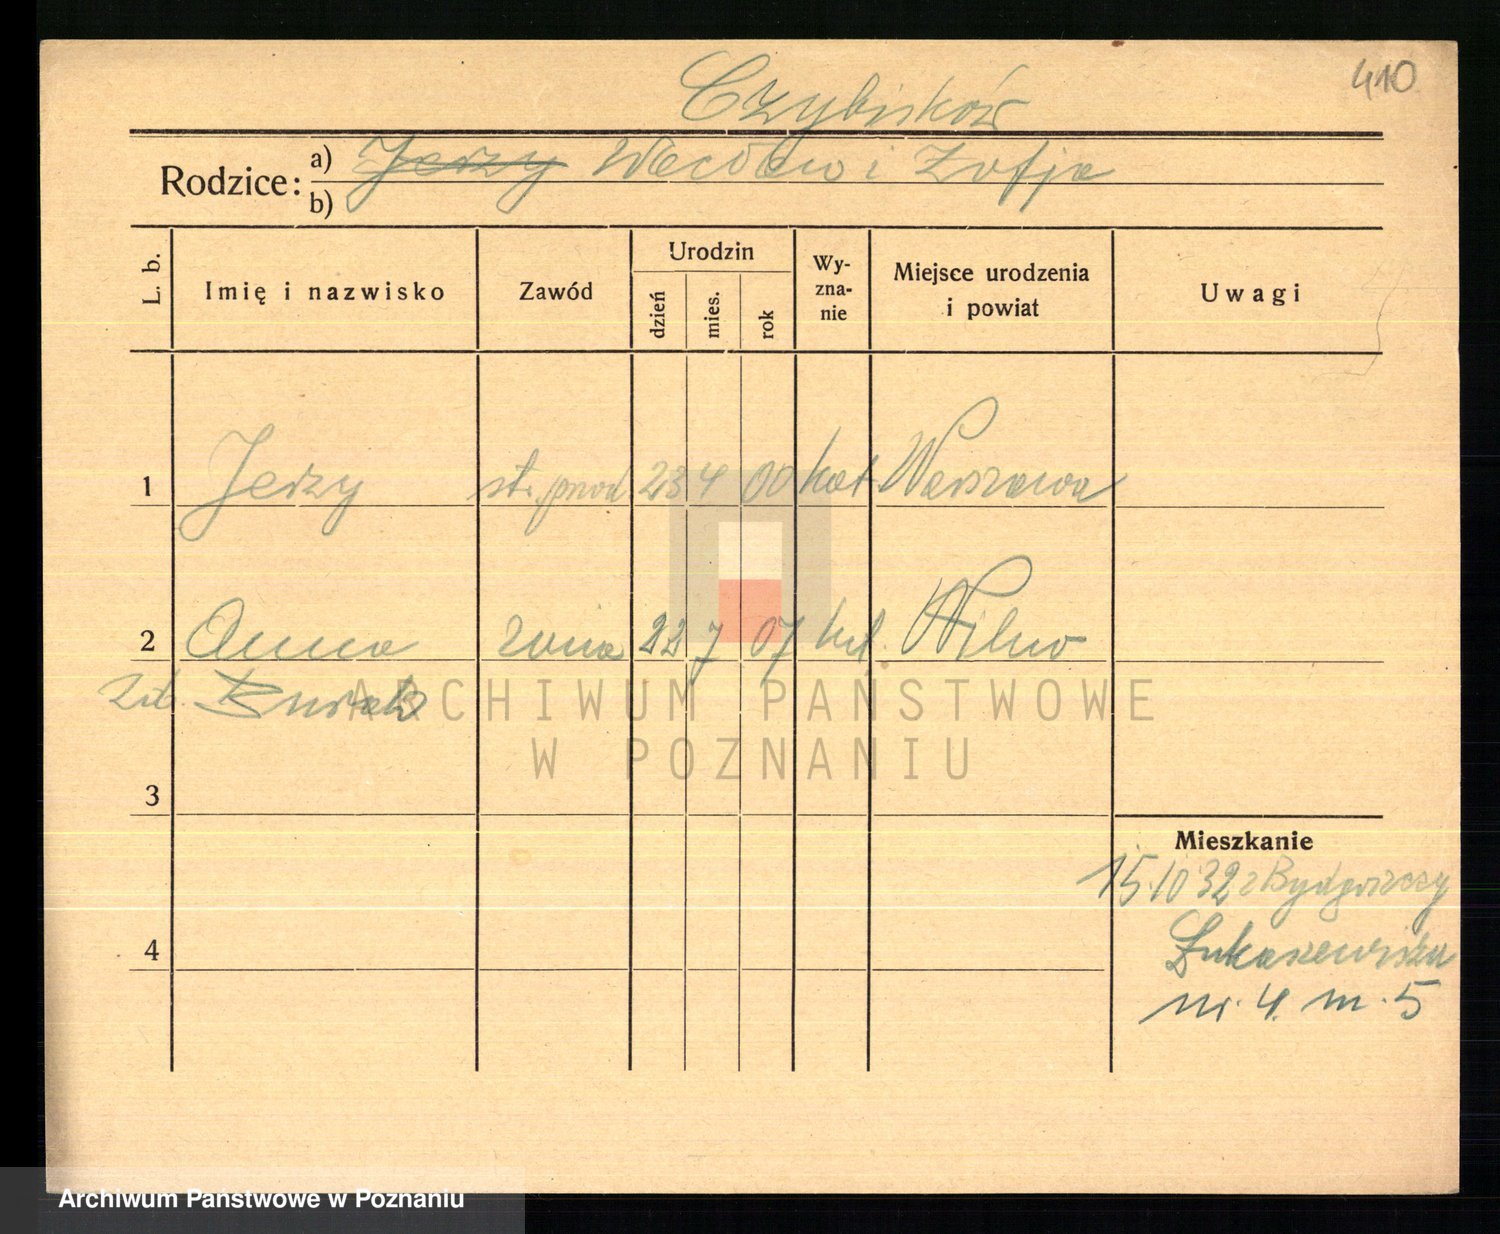 410
Czybisków
Rodzice: a) Jerzy Wacław i Zofja
b)
L. b. Imię i nazwisko Zawód Urodzin dzień mies. rok Wy-zna-nie Miejsce urodzenia i powiat Uwagi
1 Jerzy st. 23 4 00 kat. Warszawa
2 Anna żona 22 7 07 kat. Wilno
3
Mieszkanie
15 10 32 z Bydgoszczy
4 Łukaszewicza
nr. 4 m. 5
ARCHIWUM PAŃSTWOWE
W POZNANIU
Archiwum Państwowe w Poznaniu